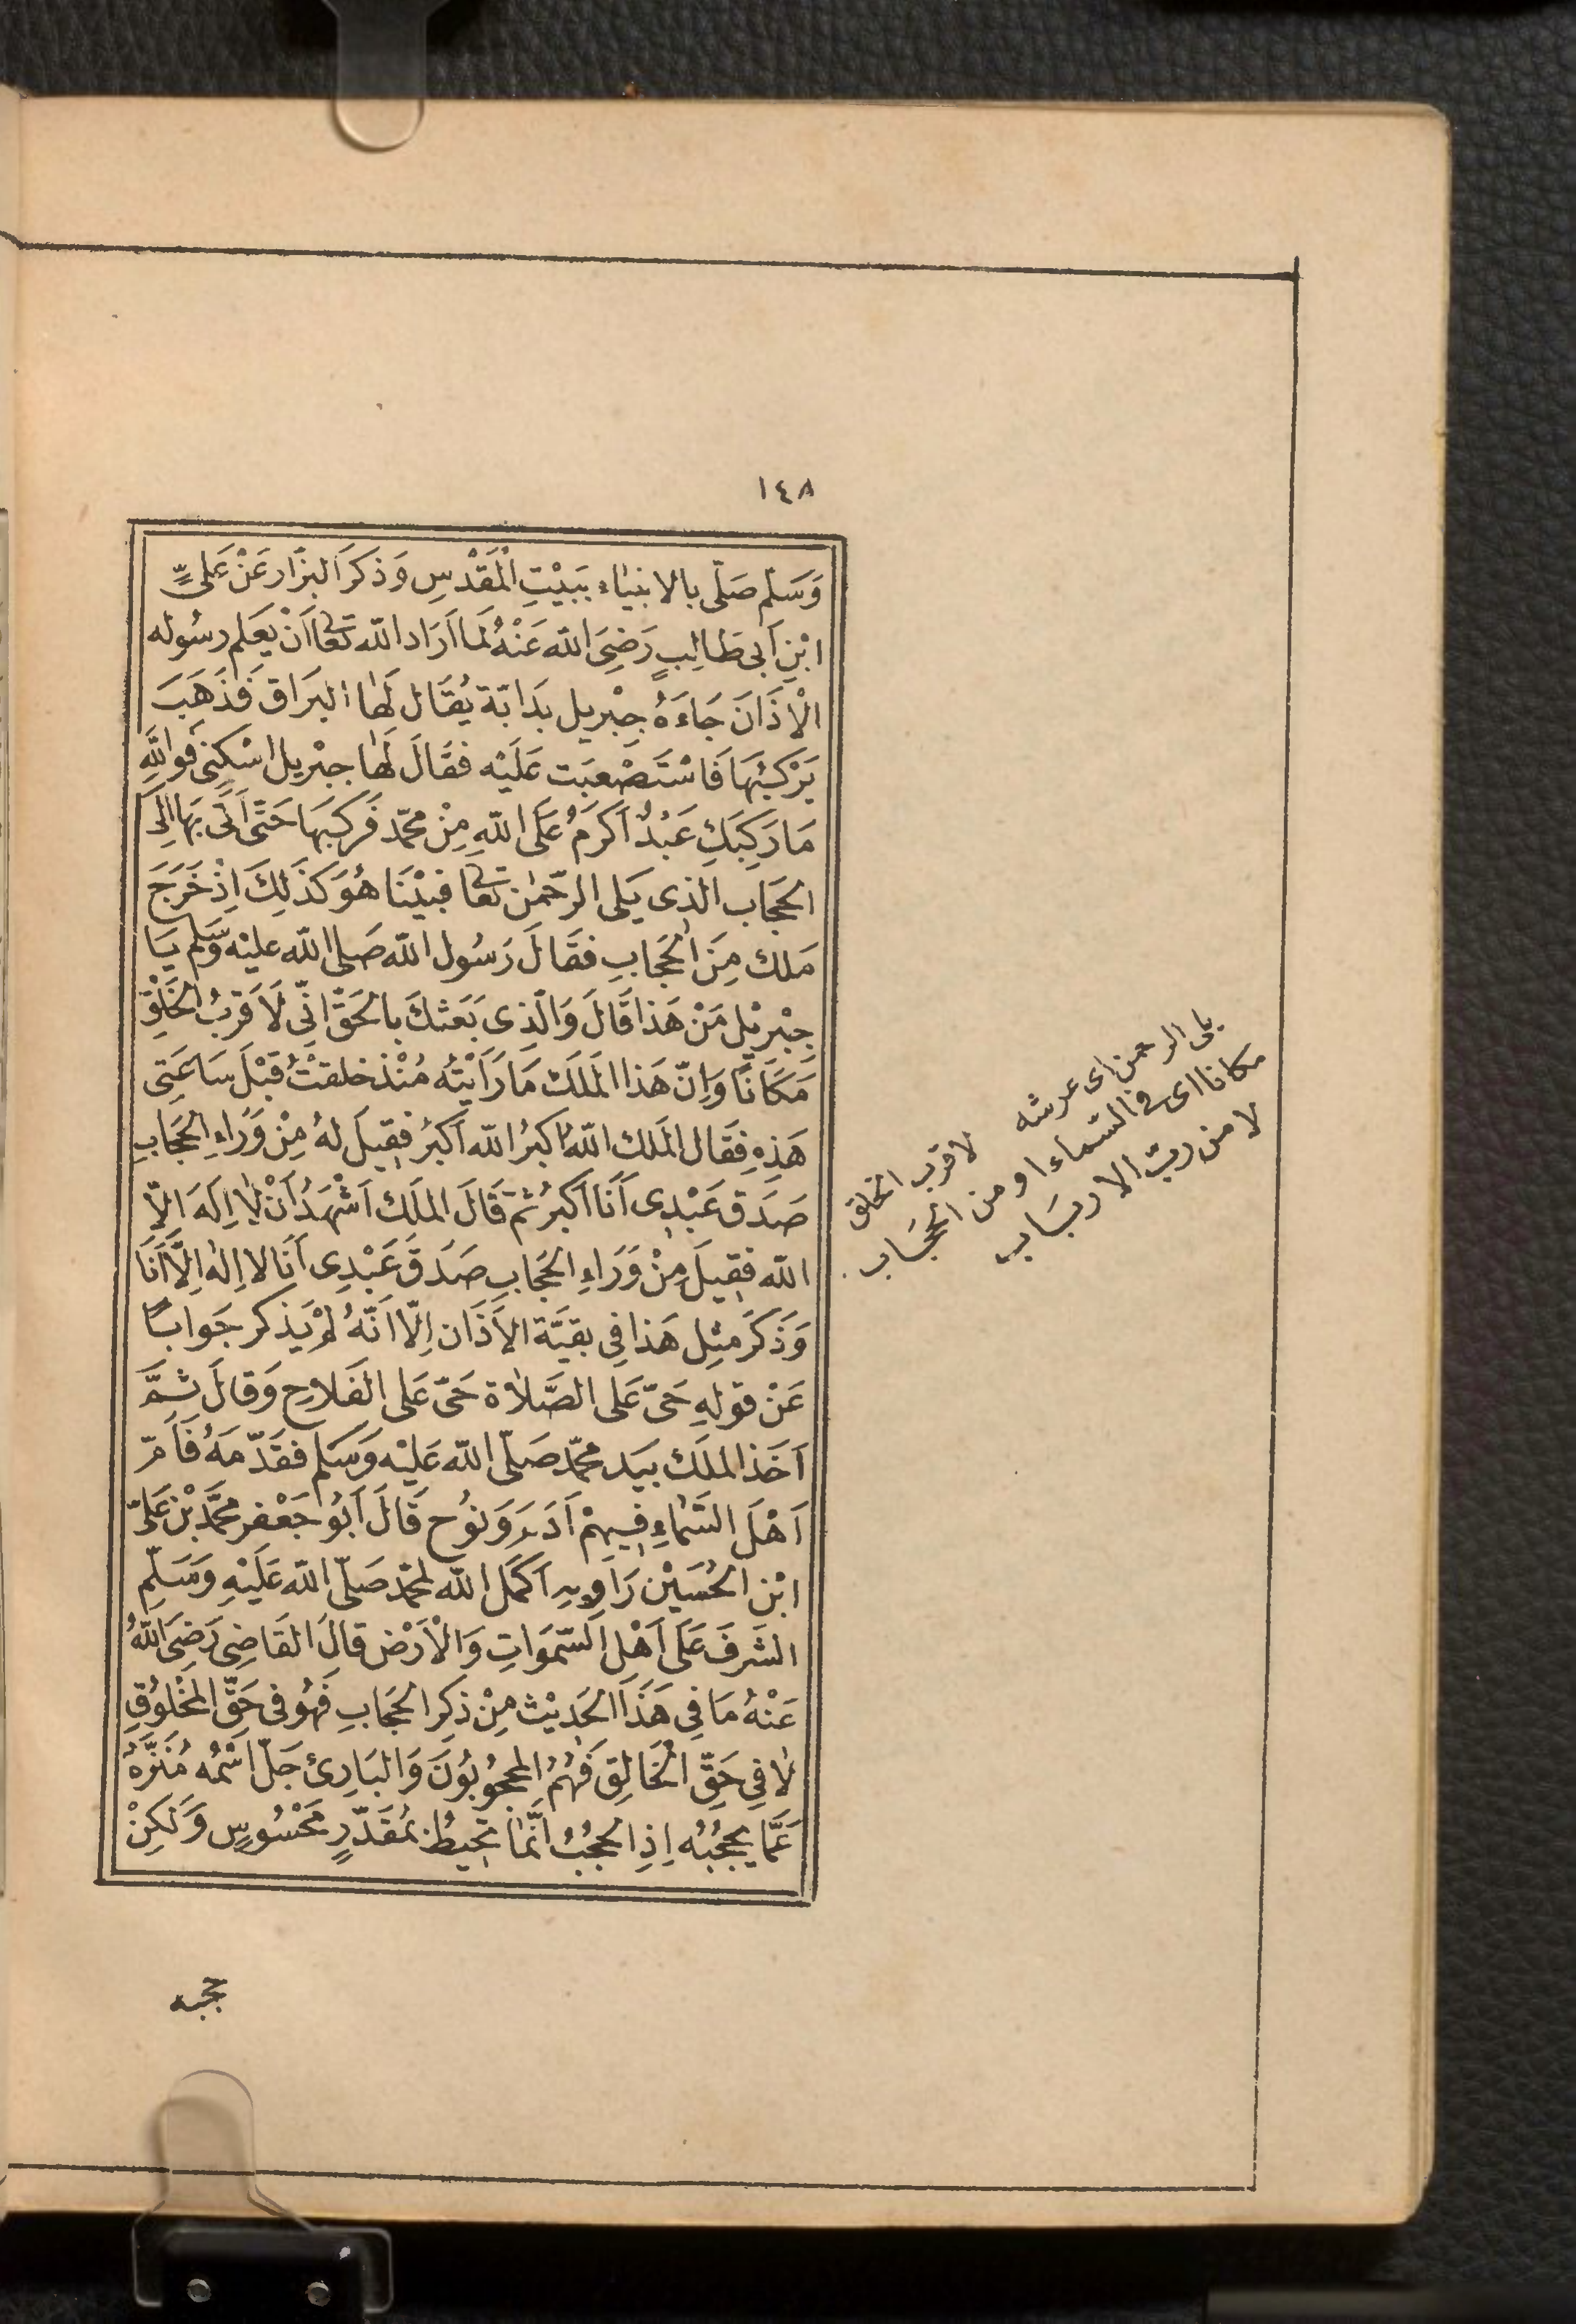 ١٤٨
وَسَلّم صَلّى بالانبياء ببَيْتِ الْمَقْدسِ وَذكَرَ البزّار عَنْ عَلىٍّ
ابْنِ اَبى طَالِبٍ رَضِىَ الله عَنْهُ لَما اَرَاد الله تعَا اَنْ يعَلم رسُوله
الْاذَانَ جَاءَهُ جِبْريل بدَابّة يُقَال لَها البرَاق فَذهَبَ
يَرْكبُهَا فَاسْتَصْعبَت عَلَيْه فقَالَ لَها جبْريل اسْكنى فَواللهِ
مَا رَكِبَكِ عَبْدٌ اَكرَمُ عَلَى اللهِ مِنْ محمّد فَركبَهَا حَتّى اَتَى بهَا اِلَى
الحَجَاب الّذِى يَلى الرّحمٰن تعَا فبيْنَا هُوَ كَذَلِكَ اِذْ خَرَجَ
مَلك مِنَ الحَجَابِ فقَالَ رَسُول الله صَلى الله عليْه وَسّلم يَا
جِبْريْل مَنْ هَذا قَالَ وَالّذِى بَعَثكَ بالحَقّ انِّى لَاَقربُ الخَلْقِ
مَكَانًا وَاِنّ هَذا المَلَكَ مَا رَاَيْتُه مُنْذ خلقتُ قَبْلَ سَاعَتِى
هَذِهِ فَقَال المَلك اللهُ اكبرُ الله اَكبَرُ فقِيلَ لهُ مِنْ وَرَاءِ الحَجَابِ
صَدَق عَبْدِى اَنَا اَكبرُ ثمّ قَالَ المَلَك اَشْهَدُ اَنْ لا اِلَهَ الاّ
الله فقِيلَ مِنْ وَرَاءِ الحَجَابِ صَدَقَ عَبْدِى اَنَا لا اِلٰه اِلّا اَنَا
وَذَكَرَ مثِل هَذا فِى بقيَّة الاَذَان اِلّا انّهُ لمْ يَذكر جَوابًا
عَنْ قولهِ حَىّ عَلى الصَّلاة حَىّ عَلى الفَلاحِ وَقالَ ثمَّ
اَخَذ المَلَك بيَد محمّد صَلّى الله عَليْه وَسَلم فقَدّمَهُ فَاَمّ
اَهْلَ السَّمَاءِ فيهِمْ اَدَم وَنوُح قَالَ اَبُو جَعْفر محمَّد بْن عَلىّ
ابْن الحُسَيْن رَاوِيهِ اَكَمَل الله لمحمّد صَلّى الله عَلَيْهِ وَسَلّم
الشَرفَ عَلَى اَهْل السّموَاتِ وَالْاَرَضْ قالَ القَاضِى رَضِىَ اللهُ
عَنْهُ مَا فِى هَذَا الحَدِيْث مِنْ ذِكر الحجَابِ فَهُو فى حَقّ المَخْلوُقِ
لا فِى حَقّ الْخَالِقِ فَهُمُ المحجُوبُونَ وَالبَارِئ جَلّ اسْمُه مُنَزّهٌ
عَمَّا يحجُبُه اِذِ الحجُبُ انَّمَا تحِيطُ بمُقَدّرٍ مَحْسُوسٍ وَلَكِنْ
حجبه
يلى الرحمن اى عرشه لاقرب الخلق
مكانا اى فى السّماء او من الحجَاب
لا من ربّ الاربَاب